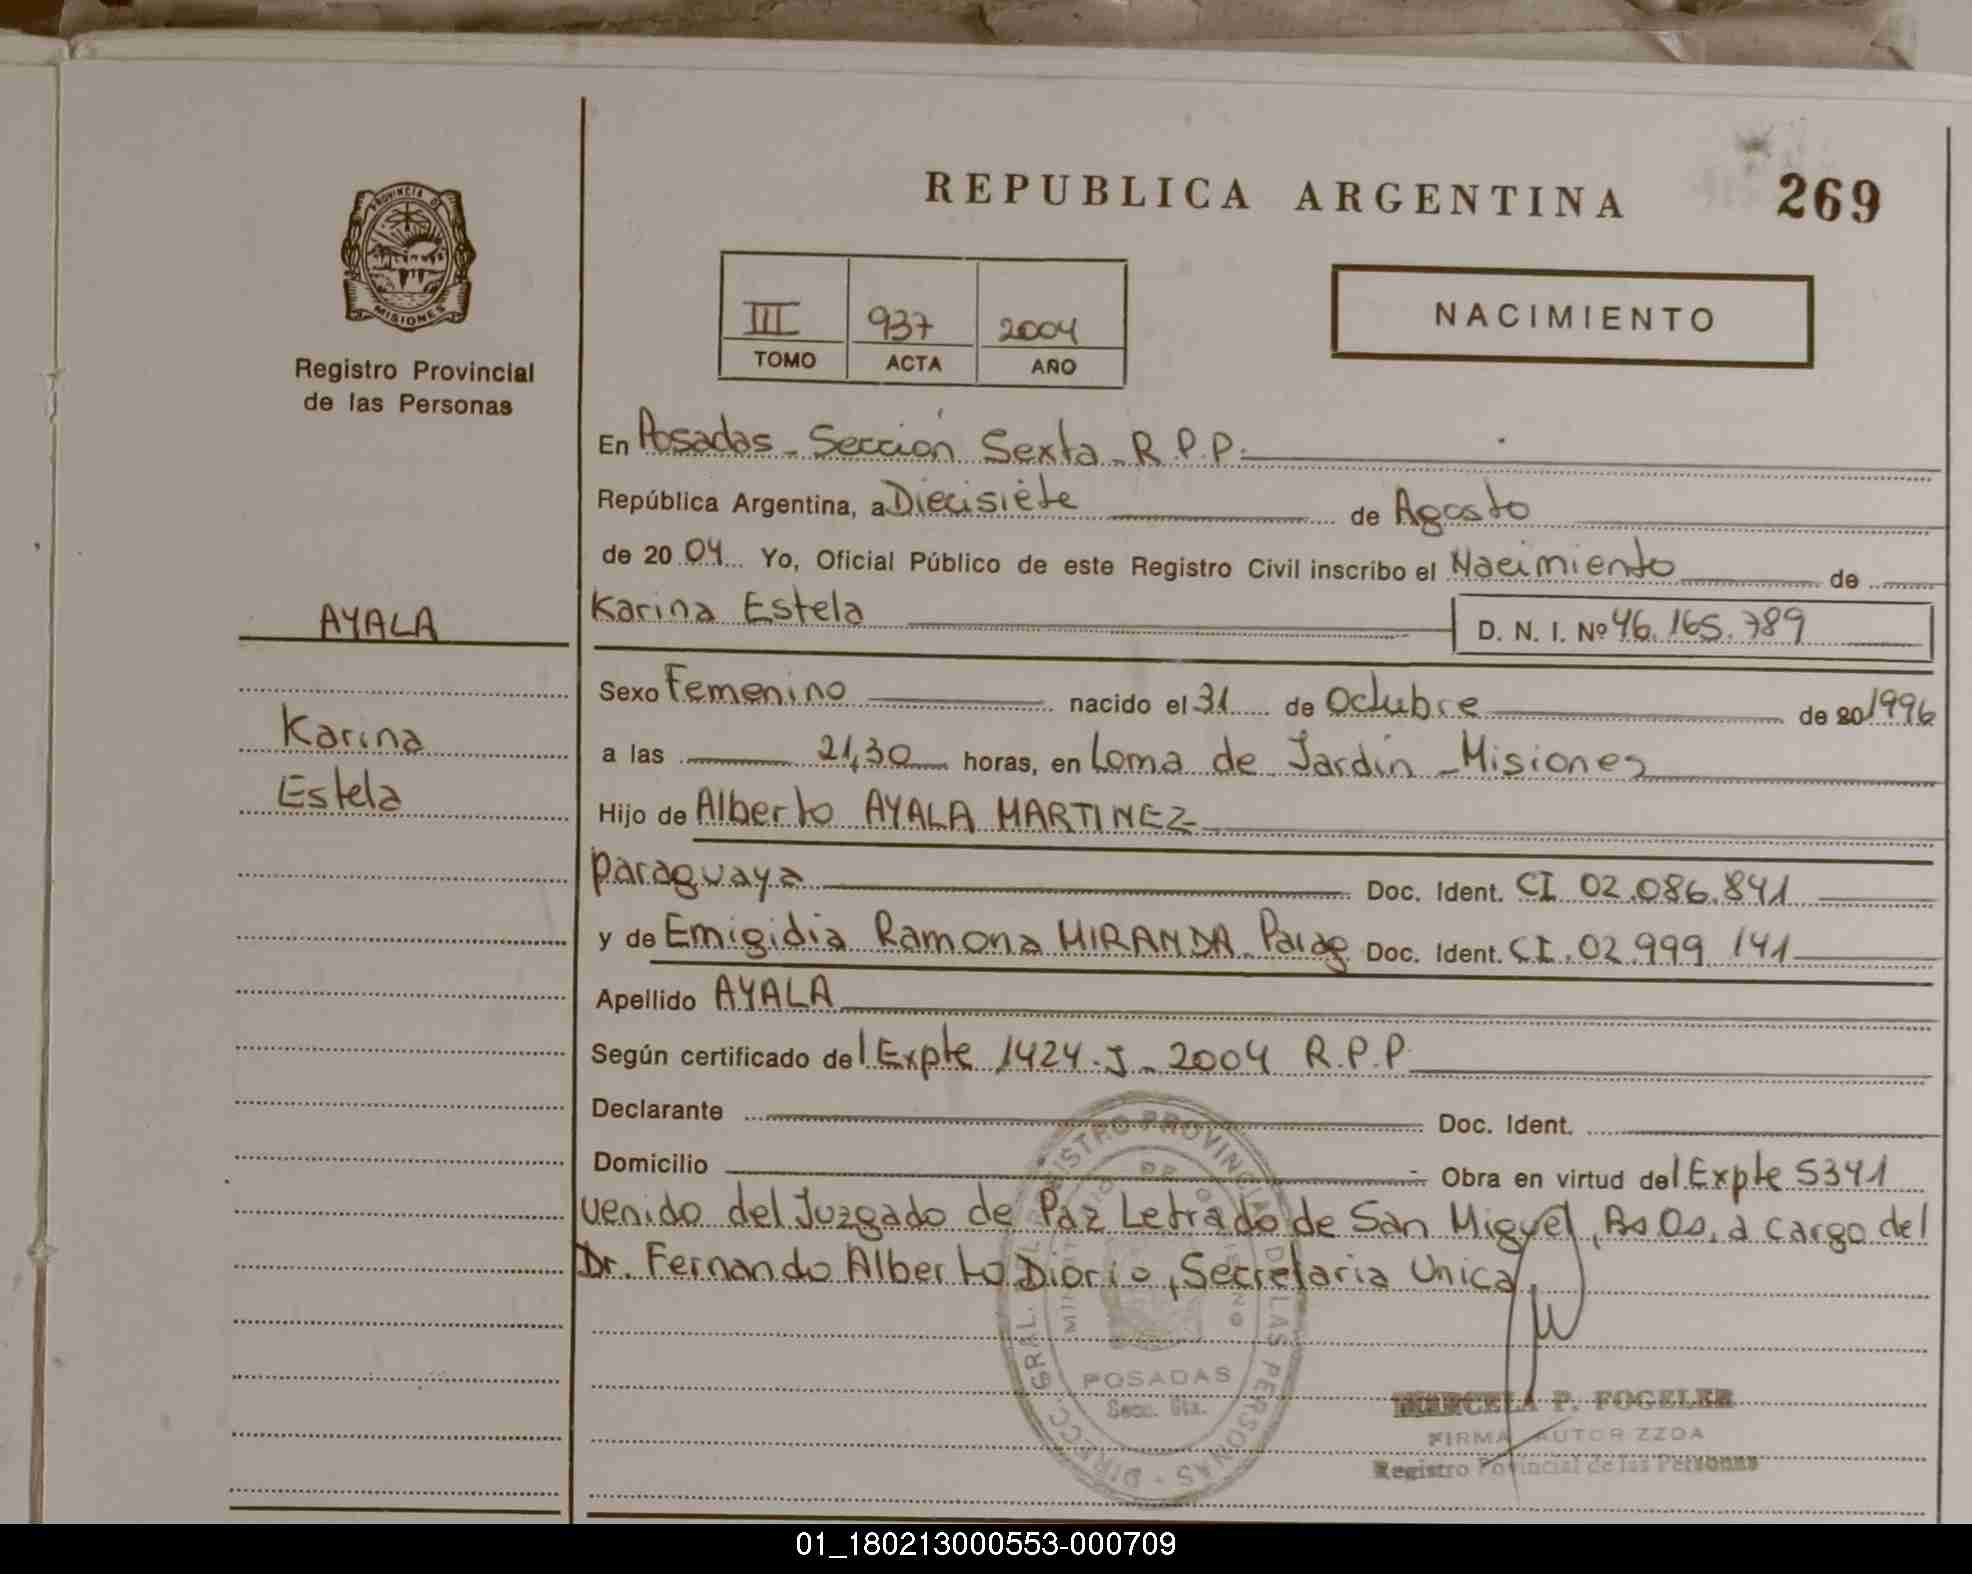 REPUBLICA ARGENTINA 269
PROVINCIA DE MISIONES
Registro Provincial
de las Personas
III 937 2004
TOMO ACTA AÑO
NACIMIENTO
En Posadas - Sección Sexta - R.P.P.
República Argentina, a Diecisiete de Agosto
de 2004 Yo, Oficial Público de este Registro Civil inscribo el Nacimiento de
Karina Estela D. N. I. Nº 46.165.789
AYALA
Karina
Estela
Sexo Femenino nacido el 31 de Octubre de 20 1996
a las 21,30 horas, en Loma de Jardín - Misiones
Hijo de Alberto AYALA MARTINEZ
Paraguaya Doc. Ident. CI 02.086.841
y de Emigidia Ramona MIRANDA - Parag Doc. Ident. CI. 02.999.141
Apellido AYALA
Según certificado del Expte 1424-J-2004 R.P.P.
Declarante Doc. Ident.
Domicilio Obra en virtud del Expte 5341
venido del Juzgado de Paz Letrado de San Miguel, Bs As, a cargo del
Dr. Fernando Alberto Diorio, Secretaria Unica.
DIRECC. GRAL. DEL REGISTRO PROVINCIAL DE LAS PERSONAS
MINISTERIO DE GOBIERNO
POSADAS
Secc. 6ta.
MARCELA P. FOGELER
FIRMA AUTORIZZDA
Registro Povincial de las Personas
01_180213000553-000709